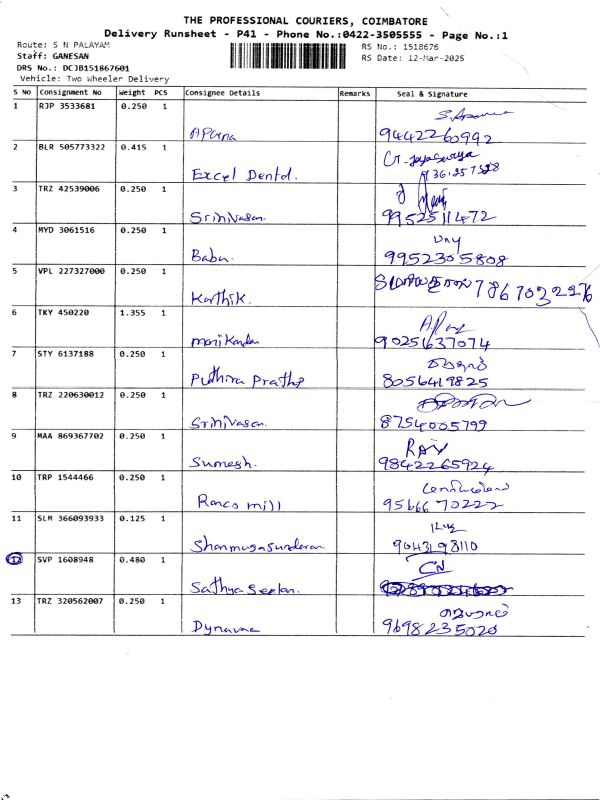 THE PROFESSIONAL COURIERS, COIMBATORE
Delivery Runsheet - P41 - Phone No.:0422-3505555 - Page No.:1
Route: S N PALAYAM
RS No.: 1518676
Staff: GANESAN
RS Date: 12-Mar-2025
DRS No.: DCJB151867601
Vehicle: Two Wheeler Delivery
S No Consignment No Weight PCS Consignee Details Remarks Seal & Signature
1 RJP 3533681 0.250 1
Aparna 9442260992
2 BLR 505773322 0.415 1
Excel Dental.
3 TRZ 42539006 0.250 1
Srinivasan 9952511472
4 MYD 3061516 0.250 1
Babu. 9952305808
5 VPL 227327000 0.250 1
Karthik. 7867032276
6 TKY 450220 1.355 1
9025637074
7 STY 6137188 0.250 1
8056419825
8 TRZ 220630012 0.250 1
Srinivasan. 8754005799
9 MAA 869367702 0.250 1
Sumesh. 9842265924
10 TRP 1544466 0.250 1
mill 9566670222
11 SLM 366093933 0.125 1
Shanmugasundaran 9043198110
12 SVP 1608948 0.480 1
CN
Sathya
13 TRZ 320562007 0.250 1
9698235020